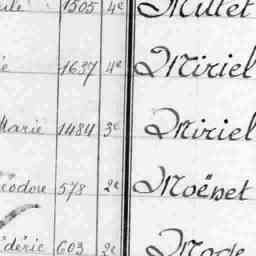 1505 4e Millet
1637 4e Miriel
Marie 1484 3e Miriel
éodore 578 2e Moënet
édéric 603 2e